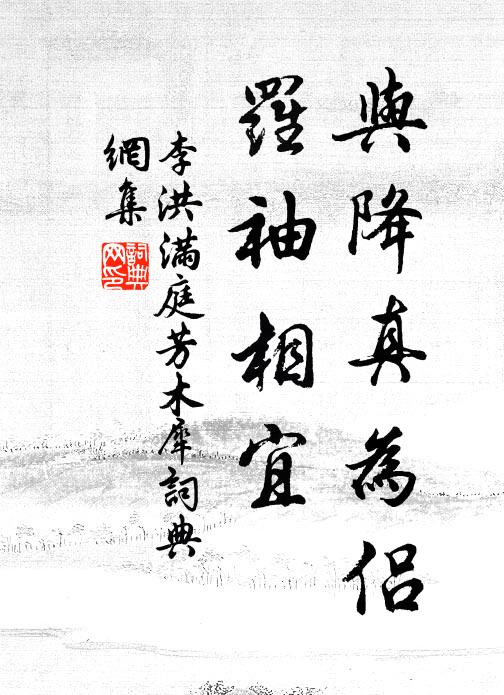 與降真為侶
羅袖相宜
李洪滿庭芳木犀詞典
網集
詞典
网印